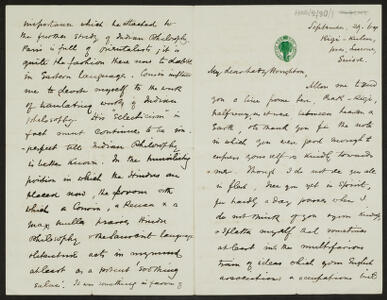 September. 29. 69
Rigi-Kulm,
near Lucerne,
Suisse.
My dear Lady Houghton,
Allow me to send
you a line from here,
halfway, as it were between heaven &
Earth, to thank you for the note
in which you were good enough to
express yourself so kindly towards
me. Though I do not see you
in flesh, I see you yet in spirit,
for hardly a day passes when I
do not think of you again kindly
& I flatter myself that sometimes
at least in the multifarious
train of ideas which your English
associations & occupations
importance which he attached to
the further study of Indian Philosophy.
Paris is full of Orientalists; it is
quite the fashion there now to dabble
in Eastern languages. Cousin
me to devote myself to the work
of translating works of Indian
philosophy His Eclecticism in
fact must continue to be im
-perfect till Indian Philosophy
is better known. In the humiliating
position in which the Hindus are
placed now, the fervour with
which a Cousin, a Renan & a
Max Muller praises Hindu
Philosophy & the Sanscrit language
&
at least as a potent soothing
salve. It is something in favour of